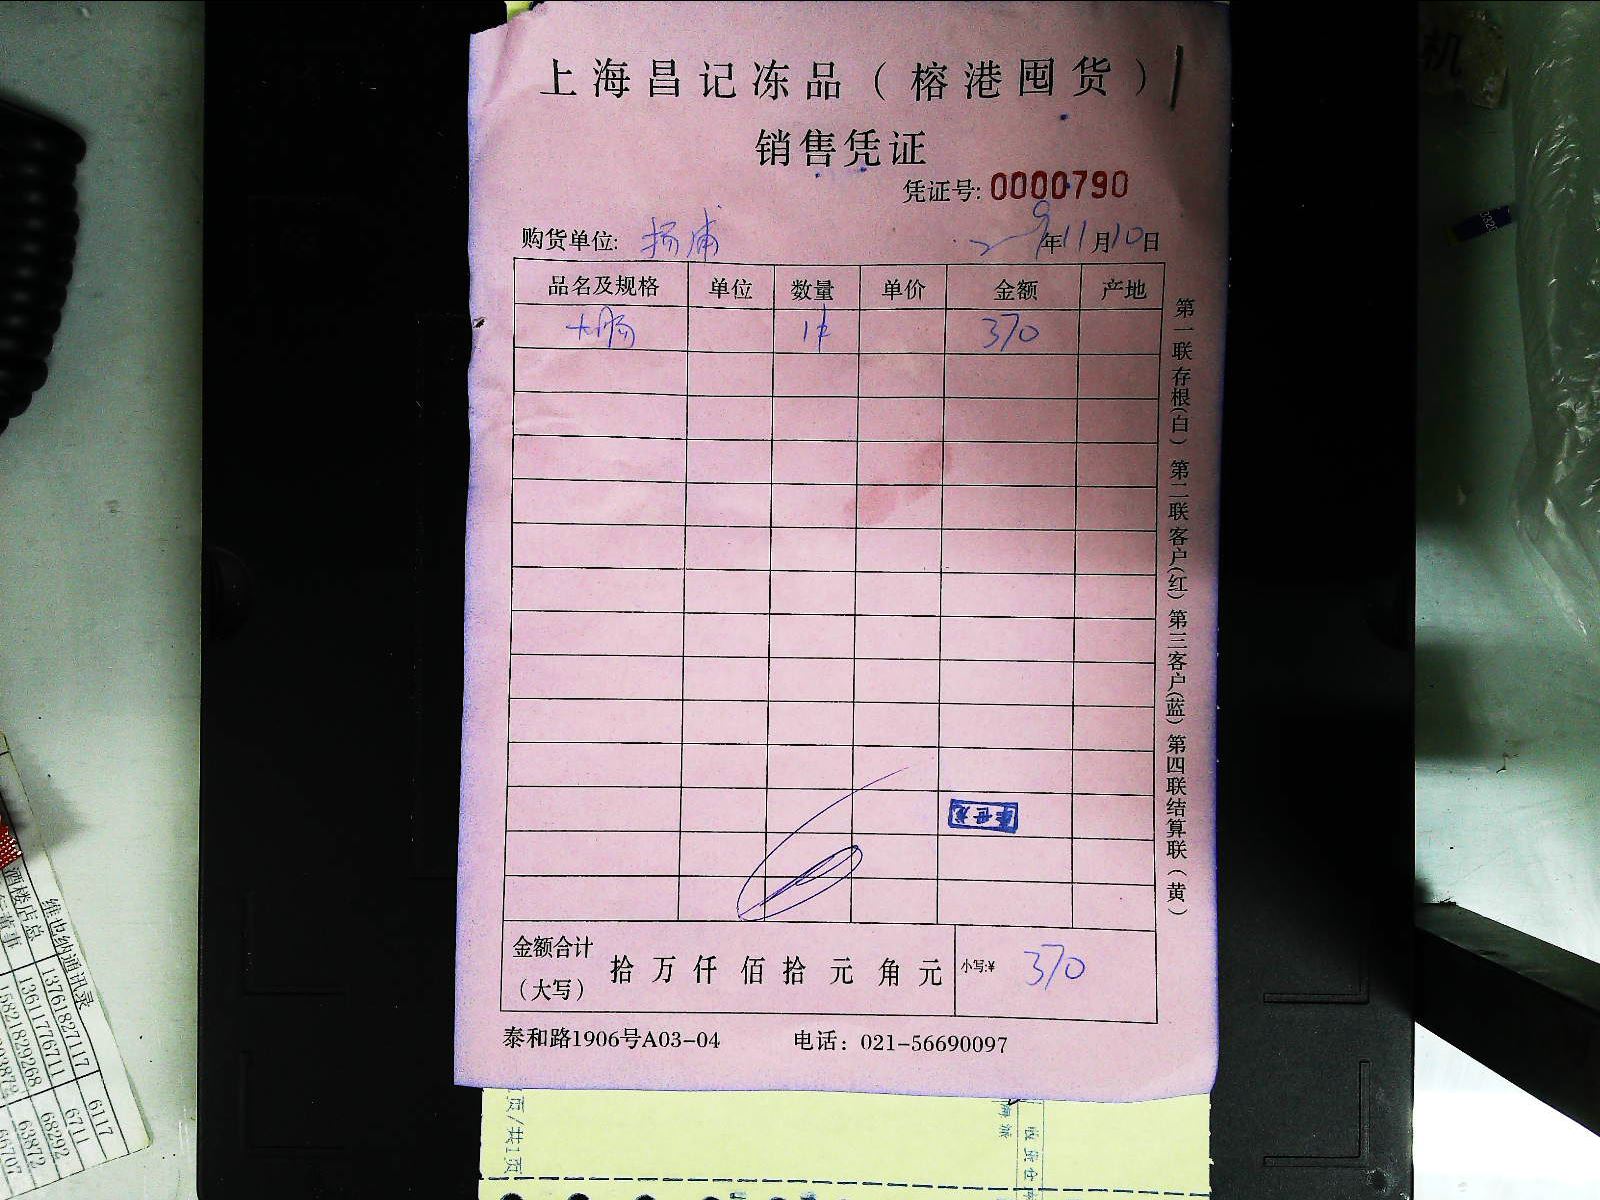 上海昌记冻品（榕港囤货）
销售凭证
凭证号: 0000790
购货单位: 杨浦 9年11月10日
品名及规格 单位 数量 单价 金额 产地
大肠 1件 370
金额合计（大写） 拾 万 仟 佰 拾 元 角 元 小写:¥ 370
泰和路1906号A03-04 电话：021-56690097
第一联存根(白) 第二联客户(红) 第三客户(蓝) 第四联结算联(黄)
页/共1页
维也纳通讯录
酒楼店总 13761827117 6117
13611776711 6711
15821829268 68292
63872